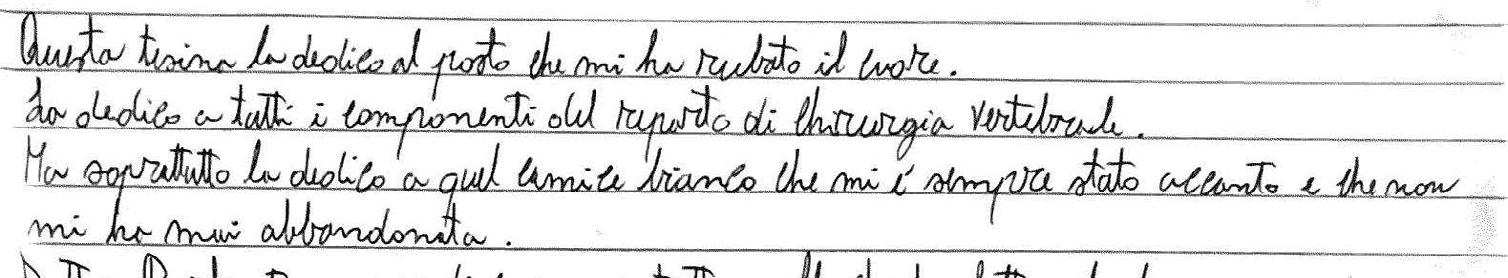 Questa tesina la dedico al posto che mi ha rubato il cuore.
La dedico a tutti i componenti del reparto di chirurgia vertebrale.
Ma soprattutto la dedico a quel camice bianco che mi é sempre stato accanto e che non
mi ha mai abbandonata.